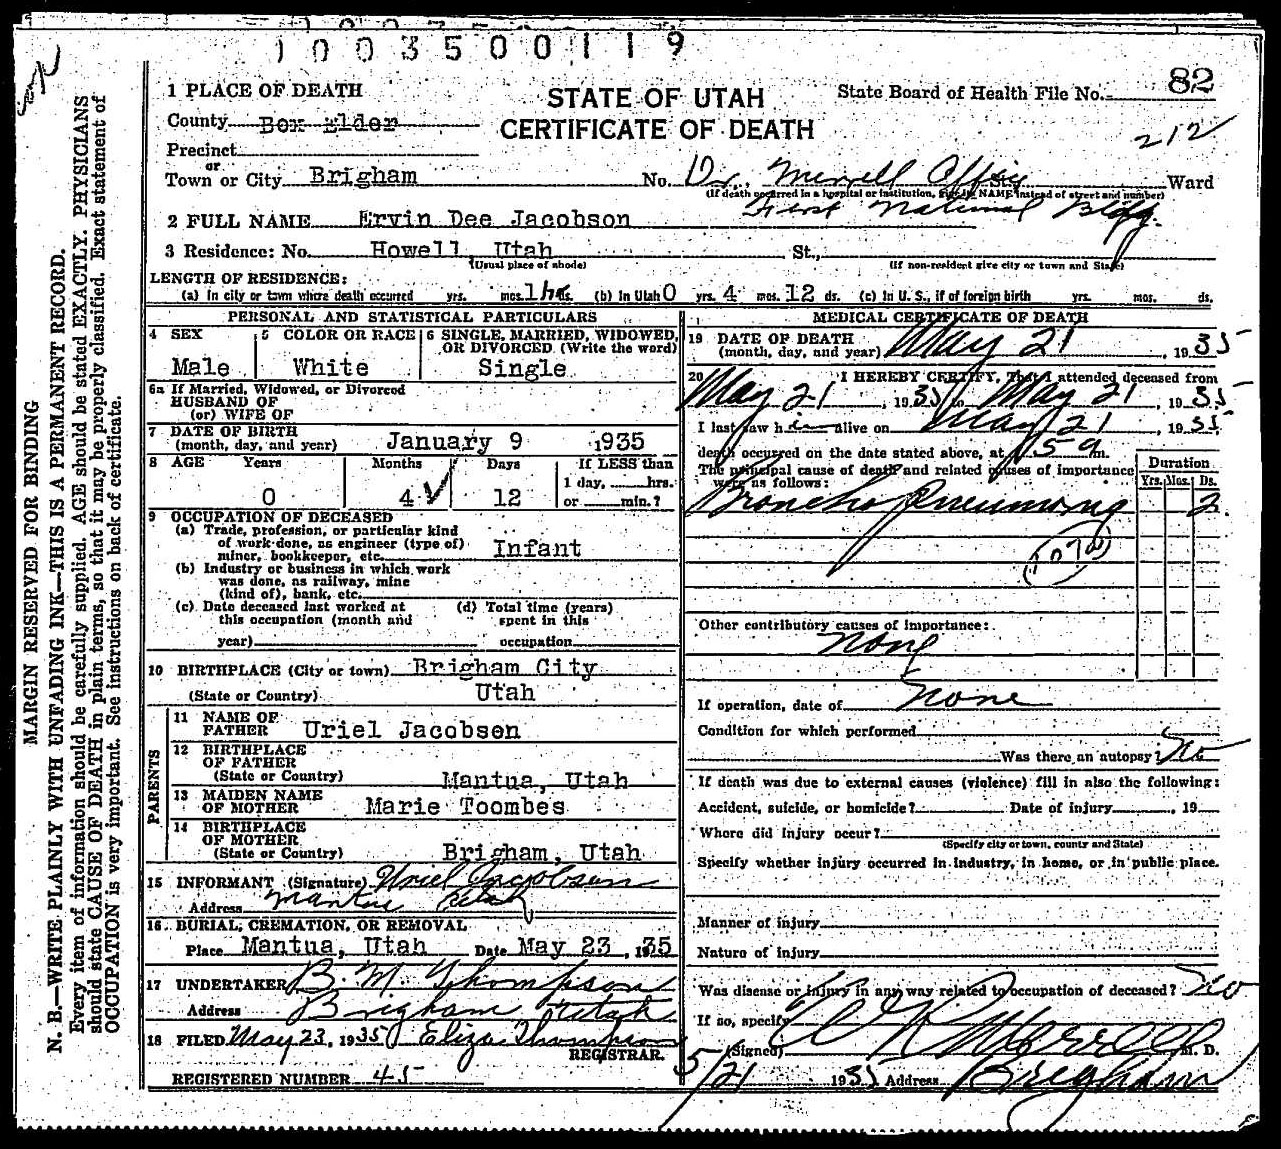 1003500119
1 PLACE OF DEATH
STATE OF UTAH
CERTIFICATE OF DEATH
State Board of Health File No. 82
County Box Elder
212
Precinct
or
Town or City Brigham No. Dr. Merrell Office St. Ward
(If death occurred in a hospital or institution, give its NAME instead of street and number)
First National Bldg.
2 FULL NAME Ervin Dee Jacobson
3 Residence: No. Howell, Utah St.,
(Usual place of abode) (If non-resident give city or town and State)
LENGTH OF RESIDENCE:
(a) In city or town where death occurred yrs. mos. 1 hr ds. (b) In Utah 0 yrs. 4 mos. 12 ds. (c) In U. S., if of foreign birth yrs. mos. ds.
PERSONAL AND STATISTICAL PARTICULARS
4 SEX
Male
5 COLOR OR RACE
White
6 SINGLE, MARRIED, WIDOWED,
OR DIVORCED (Write the word)
Single
6a If Married, Widowed, or Divorced
HUSBAND OF
(or) WIFE OF
7 DATE OF BIRTH
(month, day, and year) January 9 1935
8 AGE Years Months Days If LESS than
1 day, hrs.
or min.?
0 4 12
9 OCCUPATION OF DECEASED
(a) Trade, profession, or particular kind
of work done, as engineer (type of)
miner, bookkeeper, etc. Infant
(b) Industry or business in which work
was done, as railway, mine
(kind of), bank, etc.
(c) Date deceased last worked at
this occupation (month and
year)
(d) Total time (years)
spent in this
occupation
10 BIRTHPLACE (City or town) Brigham City
(State or Country) Utah
PARENTS
11 NAME OF
FATHER Uriel Jacobsen
12 BIRTHPLACE
OF FATHER
(State or Country) Mantua, Utah
13 MAIDEN NAME
OF MOTHER Marie Toombes
14 BIRTHPLACE
OF MOTHER
(State or Country) Brigham, Utah
15 INFORMANT (Signature) Uriel Jacobsen
Address Mantua Utah
16 BURIAL, CREMATION, OR REMOVAL
Place Mantua, Utah Date May 23, 1935
17 UNDERTAKER B. M. Thompson
Address Brigham Utah
18 FILED May 23, 1935 Eliza Thompson
REGISTRAR.
REGISTERED NUMBER 45
MEDICAL CERTIFICATE OF DEATH
19 DATE OF DEATH
(month, day, and year) May 21, 1935
20 I HEREBY CERTIFY, That I attended deceased from
May 21, 1935 to May 21, 1935
I last saw him alive on May 21, 1935
death occurred on the date stated above, at 15 a m.
The principal cause of death and related causes of importance
were as follows:
Duration
Yrs. Mos. Ds.
Broncho Pneumonia 2
107a
Other contributory causes of importance:
none
If operation, date of none
Condition for which performed
Was there an autopsy? No
If death was due to external causes (violence) fill in also the following:
Accident, suicide, or homicide? Date of injury, 19
Where did injury occur?
(Specify city or town, county and State)
Specify whether injury occurred in industry, in home, or in public place.
Manner of injury
Nature of injury
Was disease or injury in any way related to occupation of deceased? No
If so, specify
(Signed) Merrell M. D.
5/21 1935 Address Brigham
MARGIN RESERVED FOR BINDING
N. B.—WRITE PLAINLY WITH UNFADING INK—THIS IS A PERMANENT RECORD.
Every item of information should be carefully supplied. AGE should be stated EXACTLY. PHYSICIANS
should state CAUSE OF DEATH in plain terms, so that it may be properly classified. Exact statement of
OCCUPATION is very important. See instructions on back of certificate.